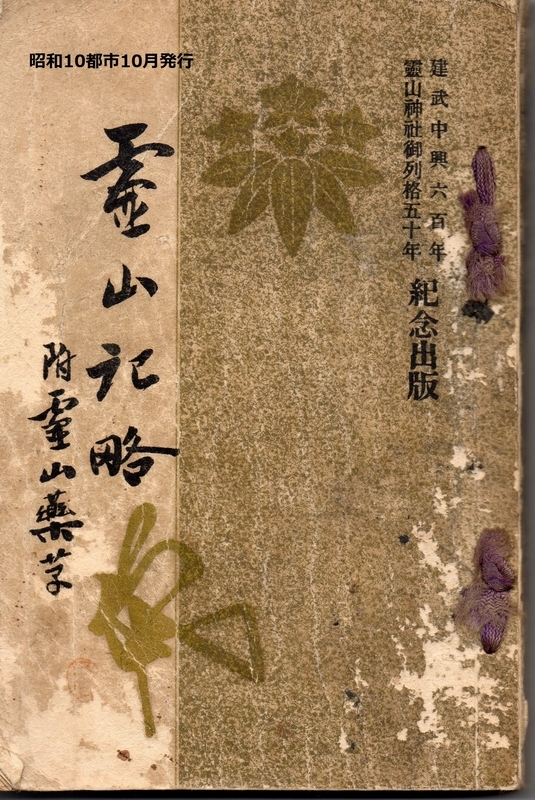 昭和10都市10月発行
建武中興六百年
靈山神社御列格五十年
紀念出版
霊山記略
附霊山藥草